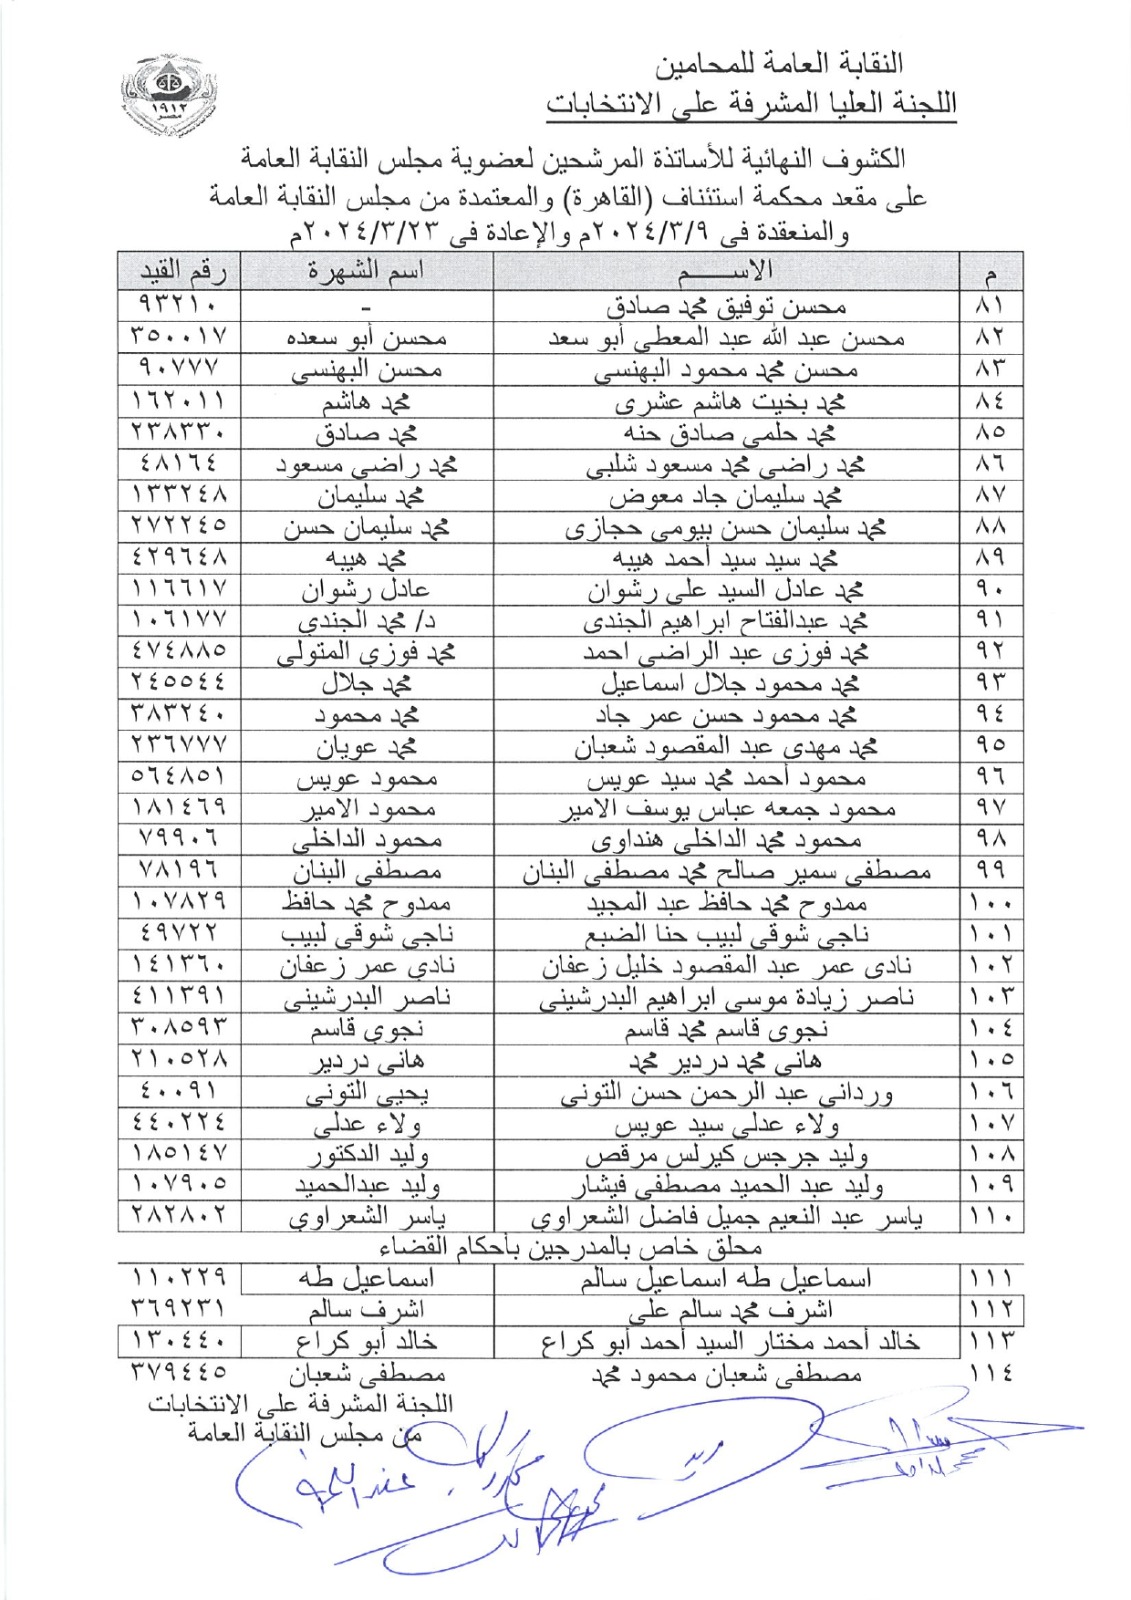 النقابة العامة للمحامين
اللجنة العليا المشرفة على الانتخابات
١٩١٢
مصر
الكشوف النهائية للأساتذة المرشحين لعضوية مجلس النقابة العامة
على مقعد محكمة استئناف (القاهرة) والمعتمدة من مجلس النقابة العامة
والمنعقدة فى ٢٠٢٤/٣/٩م والإعادة فى ٢٠٢٤/٣/٢٣م
م الاســـــم اسم الشهرة رقم القيد
٨١ محسن توفيق محمد صادق - ٩٣٢١٠
٨٢ محسن عبد الله عبد المعطي أبو سعد محسن أبو سعده ٣٥٠٠١٧
٨٣ محسن محمد محمود البهنسى محسن البهنسى ٩٠٧٧٧
٨٤ محمد بخيت هاشم عشرى محمد هاشم ١٦٢٠١١
٨٥ محمد حلمى صادق حنه محمد صادق ٢٣٨٣٣٠
٨٦ محمد راضى محمد مسعود شلبى محمد راضى مسعود ٤٨١٦٤
٨٧ محمد سليمان جاد معوض محمد سليمان ١٣٣٢٤٨
٨٨ محمد سليمان حسن بيومى حجازى محمد سليمان حسن ٢٧٢٢٤٥
٨٩ محمد سيد سيد أحمد هيبه محمد هيبه ٤٢٩٦٤٨
٩٠ محمد عادل السيد على رشوان عادل رشوان ١١٦٦١٧
٩١ محمد عبدالفتاح ابراهيم الجندى د/ محمد الجندي ١٠٦١٧٧
٩٢ محمد فوزى عبد الراضى احمد محمد فوزي المتولى ٤٧٤٨٨٥
٩٣ محمد محمود جلال اسماعيل محمد جلال ٢٤٥٥٤٤
٩٤ محمد محمود حسن عمر جاد محمد محمود ٣٨٣٢٤٠
٩٥ محمد مهدى عبد المقصود شعبان محمد عويان ٢٣٦٧٧٧
٩٦ محمود أحمد محمد سيد عويس محمود عويس ٥٦٤٨٥١
٩٧ محمود جمعه عباس يوسف الامير محمود الامير ١٨١٤٦٩
٩٨ محمود محمد الداخلى هنداوى محمود الداخلى ٧٩٩٠٦
٩٩ مصطفى سمير صالح محمد مصطفى البنان مصطفى البنان ٧٨١٩٦
١٠٠ ممدوح محمد حافظ عبد المجيد ممدوح محمد حافظ ١٠٧٨٢٩
١٠١ ناجى شوقى لبيب حنا الضبع ناجى شوقى لبيب ٤٩٧٢٢
١٠٢ نادى عمر عبد المقصود خليل زعفان نادى عمر زعفان ١٤١٣٦٠
١٠٣ ناصر زيادة موسى ابراهيم البدرشينى ناصر البدرشينى ٤١١٣٩١
١٠٤ نجوى قاسم محمد قاسم نجوي قاسم ٣٠٨٥٩٣
١٠٥ هانى محمد دردير محمد هانى دردير ٢١٠٥٢٨
١٠٦ ورداني عبد الرحمن حسن التونى يحيى التونى ٤٠٠٩١
١٠٧ ولاء عدلى سيد عويس ولاء عدلى ٤٤٠٢٢٤
١٠٨ وليد جرجس كيرلس مرقص وليد الدكتور ١٨٥١٤٧
١٠٩ وليد عبد الحميد مصطفى فيشار وليد عبدالحميد ١٠٧٩٠٥
١١٠ ياسر عبد النعيم جميل فاضل الشعراوي ياسر الشعراوي ٢٨٢٨٠٢
محلق خاص بالمدرجين بأحكام القضاء
١١١ اسماعيل طه اسماعيل سالم اسماعيل طه ١١٠٢٢٩
١١٢ اشرف محمد سالم على اشرف سالم ٣٦٩٢٣١
١١٣ خالد أحمد مختار السيد أحمد أبو كراع خالد أبو كراع ١٣٠٤٤٠
١١٤ مصطفى شعبان محمود محمد مصطفى شعبان ٣٧٩٤٤٥
اللجنة المشرفة على الانتخابات
من مجلس النقابة العامة